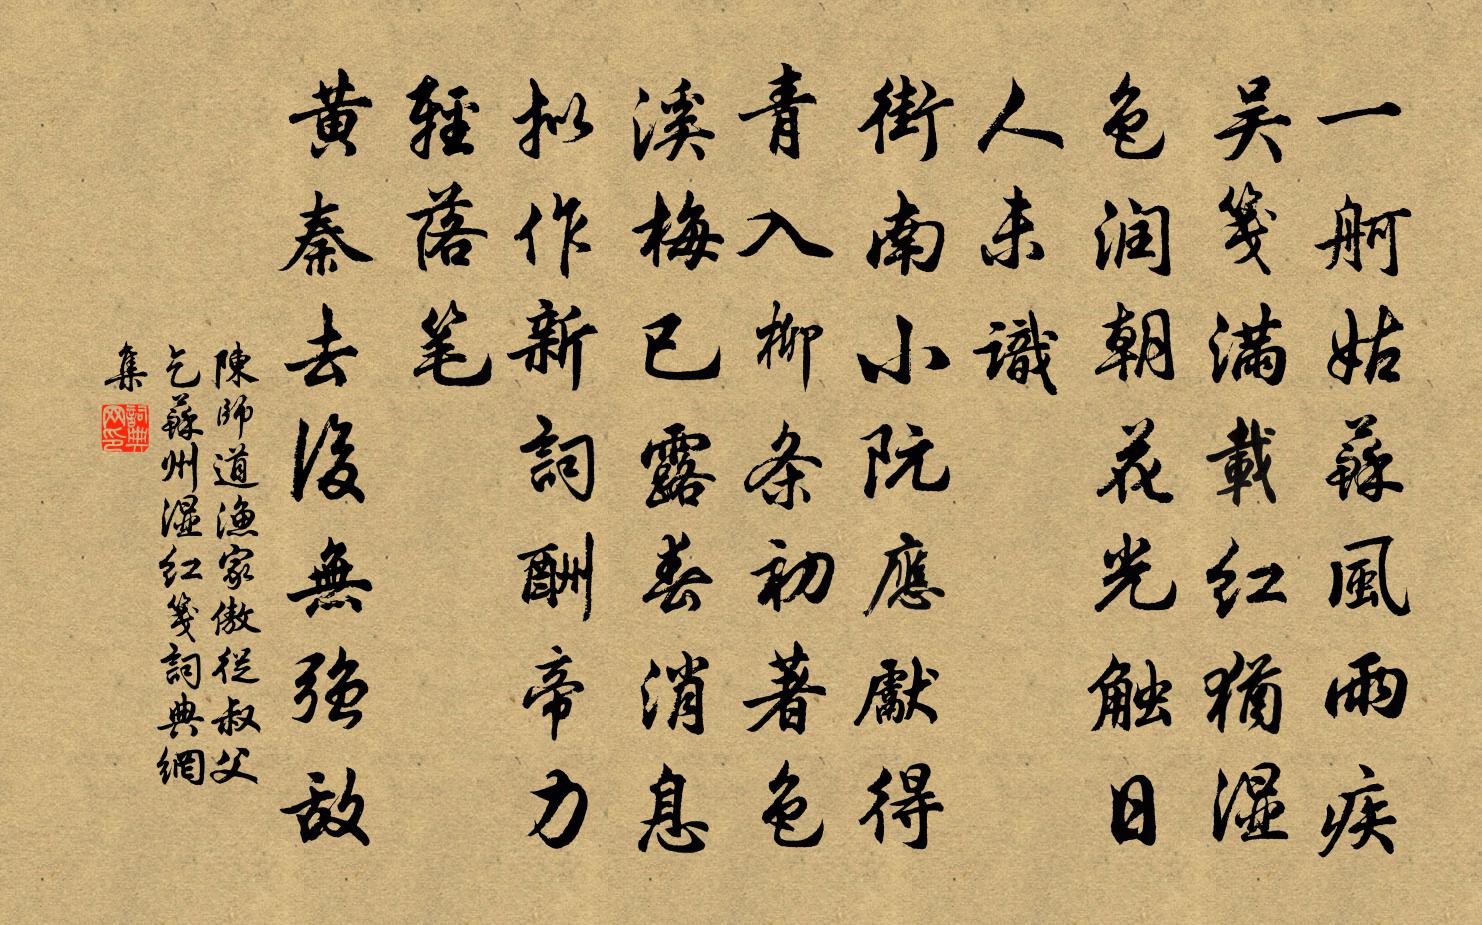 一舸姑蘇風雨疾
吴箋滿載紅猶濕
色润朝花光触日
人未識
街南小阮應獻得
青入柳条初著色
溪梅已露春消息
拟作新詞酬帝力
輕落笔
黄秦去後無強敌
陳師道漁家傲從叔父
乞蘇州濕紅箋詞典網
集
詞典
网印